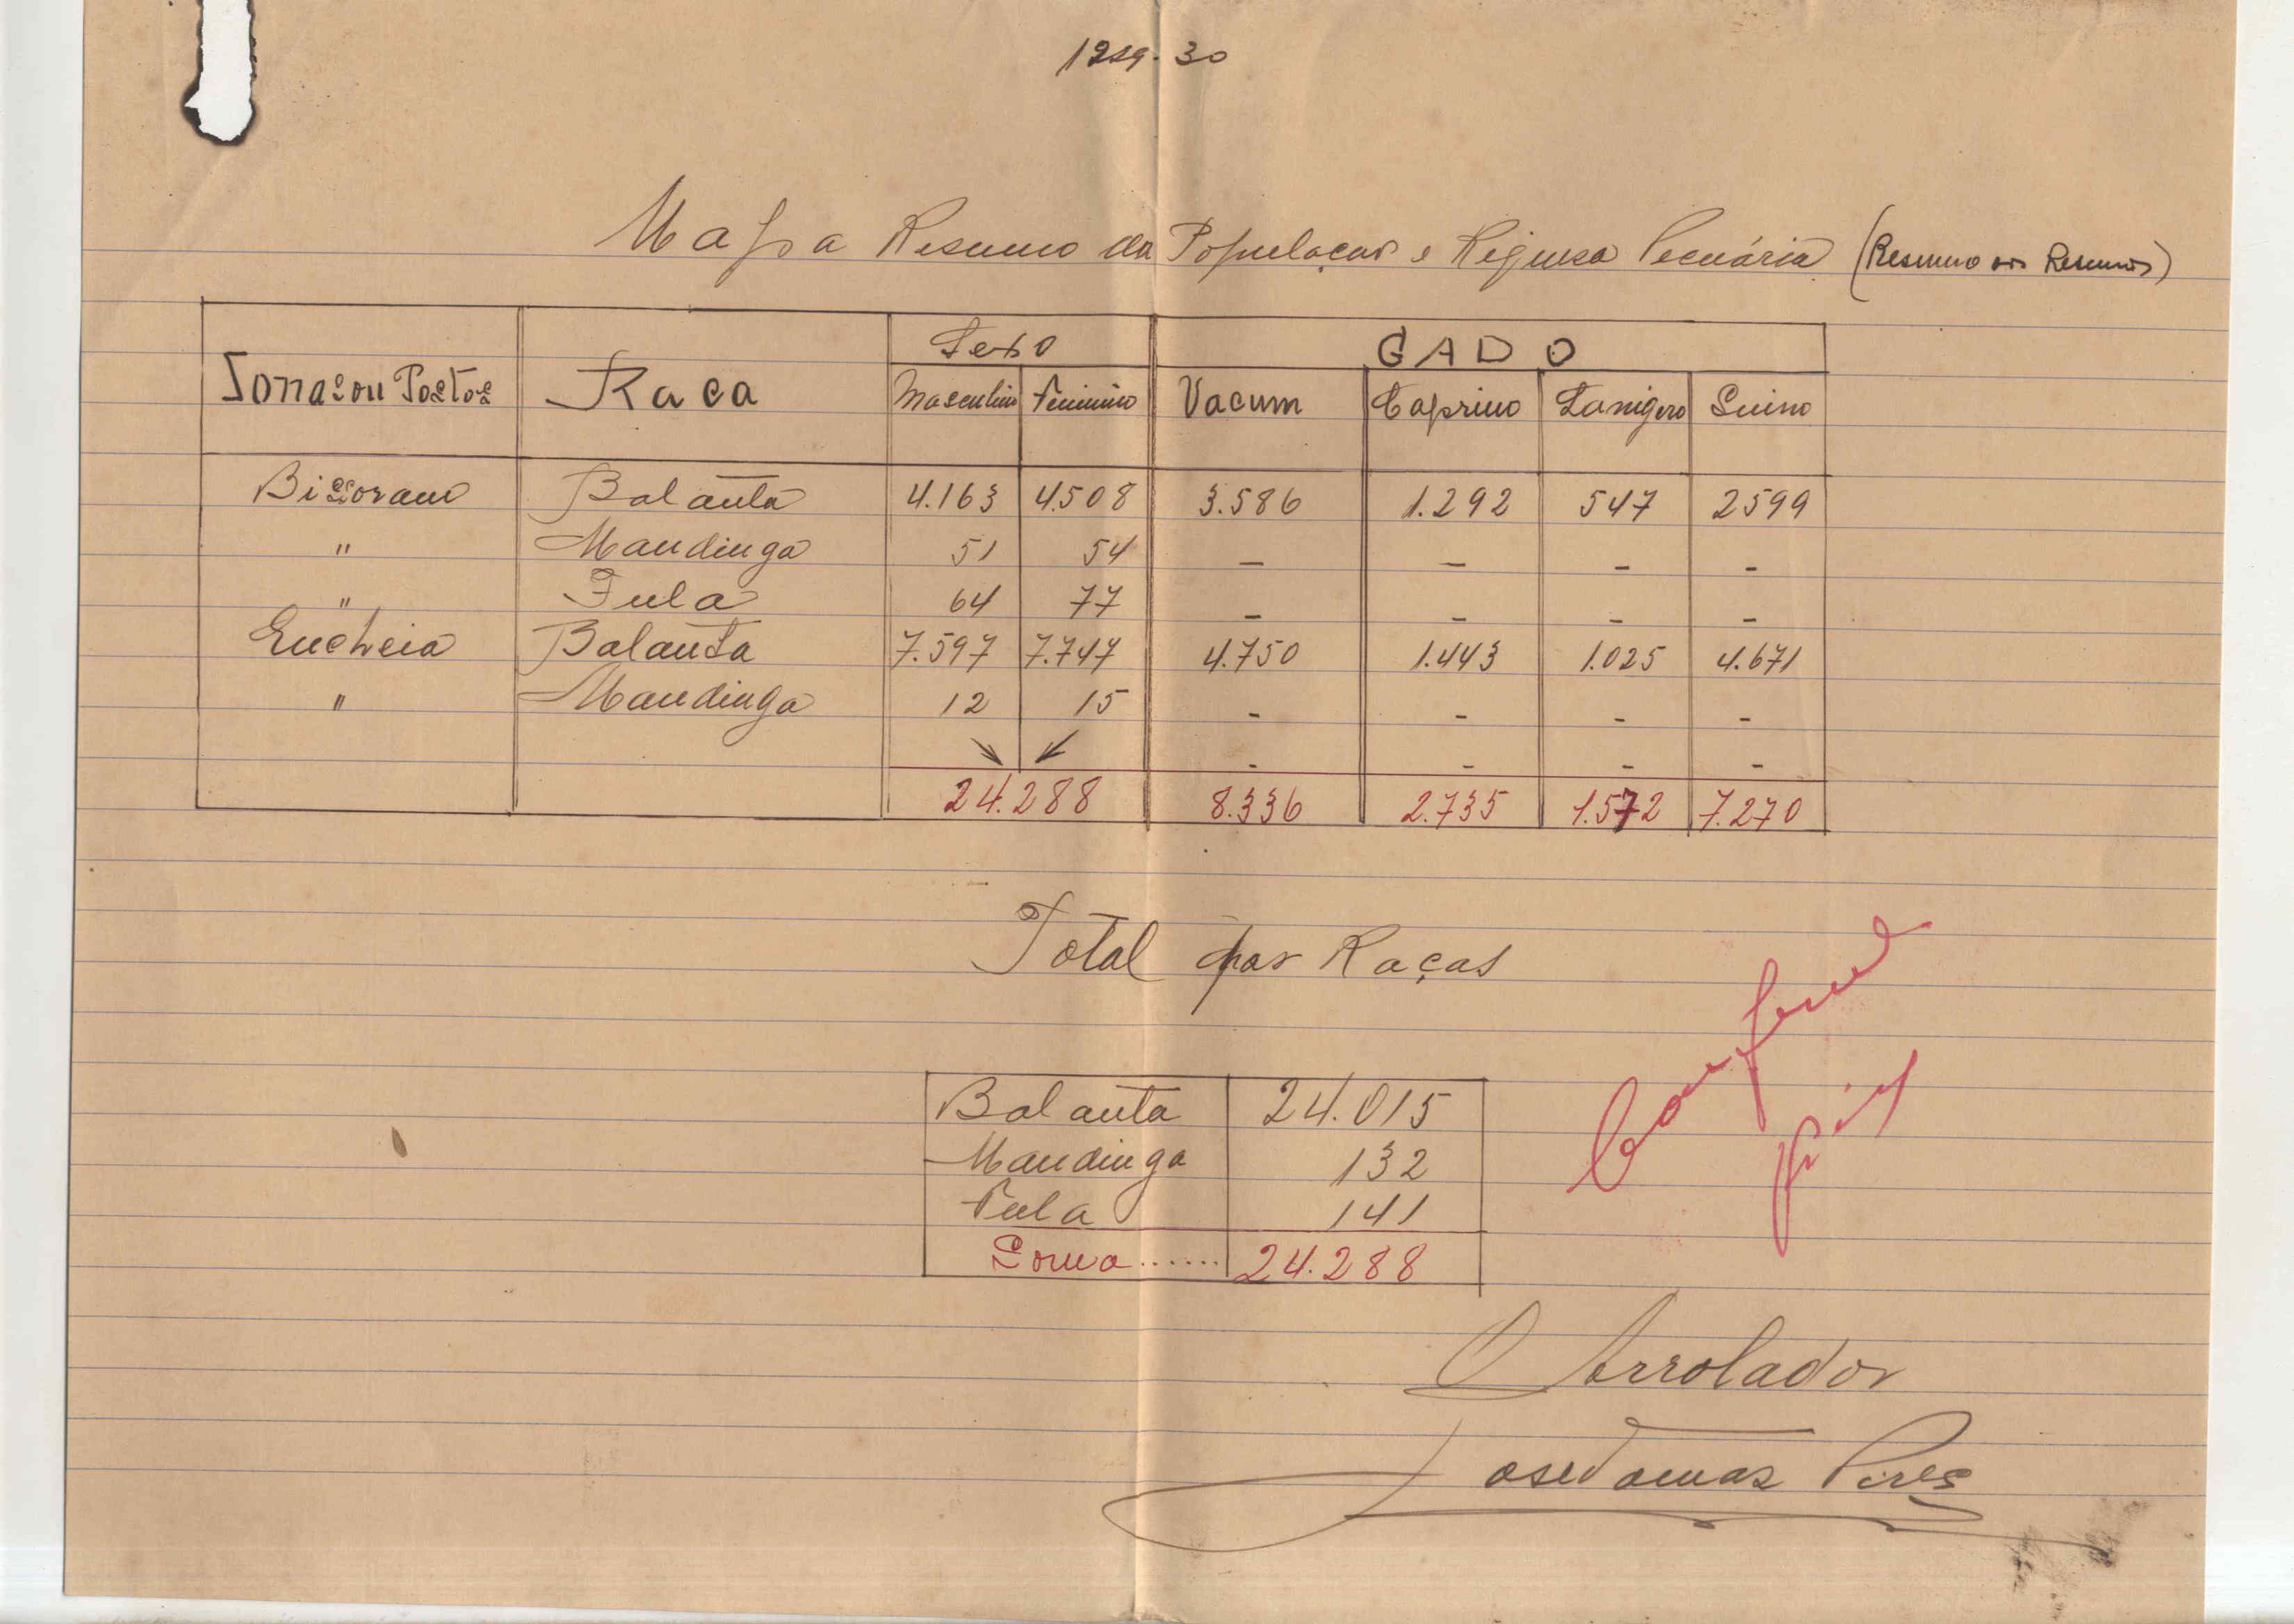 1929-30
Mapa Resumo da População e Riquesa Pecuária (Resumo dos Resumos)
Zonas ou Postos Raca Sexo GADO
Masculino Feminino Vacum Caprino Lanigero Suino
Bissoram Balanta 4.163 4.508 3.586 1.292 547 2599
" Mandinga 51 54 - - - -
" Fula 64 77 - - - -
Encheia Balanta 7.597 7.747 4.750 1.443 1.025 4.671
" Mandinga 12 15 - - - -
- - - -
24.288 8.336 2.735 1.572 7.270
Total por Raças
Balanta 24.015
Mandinga 132
Fula 141
Soma ...... 24.288
Confere
O Arrolador
José Tomas Pires